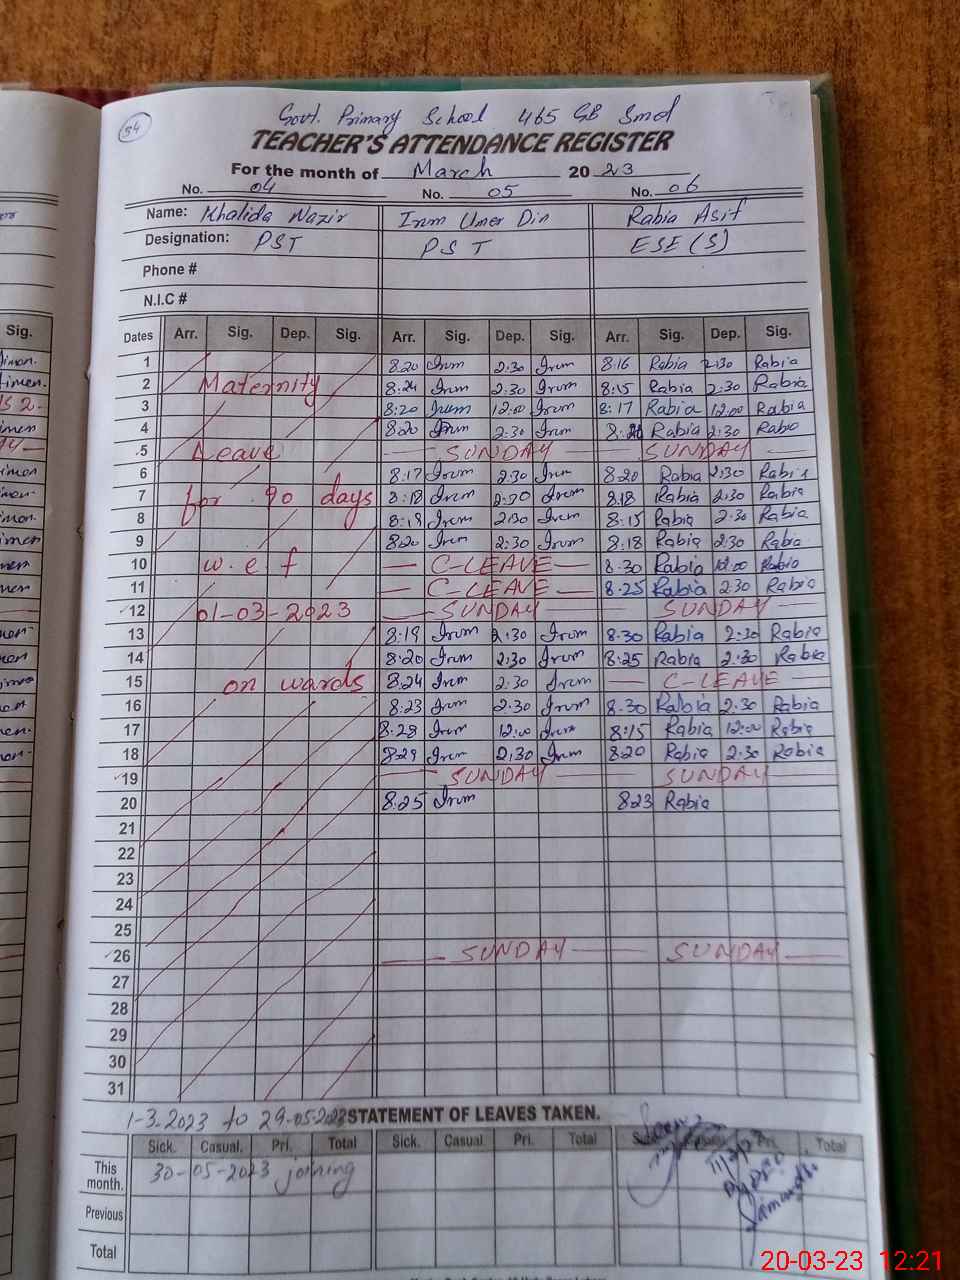 54
Govt. Primary School 465 GB Smd
TEACHER'S ATTENDANCE REGISTER
For the month of March 2023
No. 04 No. 05 No. 06
Name: Khalida Nazir Irum Umer Din Rabia Asif
Designation: PST PST ESE (S)
Phone #
N.I.C #
Sig. Dates Arr. Sig. Dep. Sig. Arr. Sig. Dep. Sig. Arr. Sig. Dep. Sig.
1 8:20 Irum 2:30 Irum 8:16 Rabia 2:30 Rabia
2 Maternity 8:24 Irum 2:30 Irum 8:15 Rabia 2:30 Rabia
3 8:20 Irum 12:00 Irum 8:17 Rabia 12:00 Rabia
4 8:20 Irum 2:30 Irum 8:20 Rabia 2:30 Rabia
5 Leave SUNDAY SUNDAY
6 8:17 Irum 2:30 Irum 8:20 Rabia 2:30 Rabia
7 for 90 days 8:18 Irum 2:30 Irum 8:18 Rabia 2:30 Rabia
8 8:18 Irum 2:30 Irum 8:15 Rabia 2:30 Rabia
9 8:20 Irum 2:30 Irum 8:18 Rabia 2:30 Rabia
10 w.e.f C-LEAVE 8:30 Rabia 12:00 Rabia
11 C-LEAVE 8:25 Rabia 2:30 Rabia
12 01-03-2023 SUNDAY SUNDAY
13 8:19 Irum 2:30 Irum 8:30 Rabia 2:30 Rabia
14 8:20 Irum 2:30 Irum 8:25 Rabia 2:30 Rabia
15 on wards 8:24 Irum 2:30 Irum C-LEAVE
16 8:23 Irum 2:30 Irum 8:30 Rabia 2:30 Rabia
17 8:28 Irum 12:00 Irum 8:15 Rabia 12:00 Rabia
18 8:29 Irum 2:30 Irum 8:20 Rabia 2:30 Rabia
19 SUNDAY SUNDAY
20 8:25 Irum 8:23 Rabia
21
22
23
24
25
26 SUNDAY SUNDAY
27
28
29
30
31
1-3-2023 to 29-05-2023 STATEMENT OF LEAVES TAKEN.
Sick. Casual. Pri. Total Sick. Casual Pri. Total Pri. Total
This month. 30-05-2023 joining
Previous
Total
20-03-23 12:21